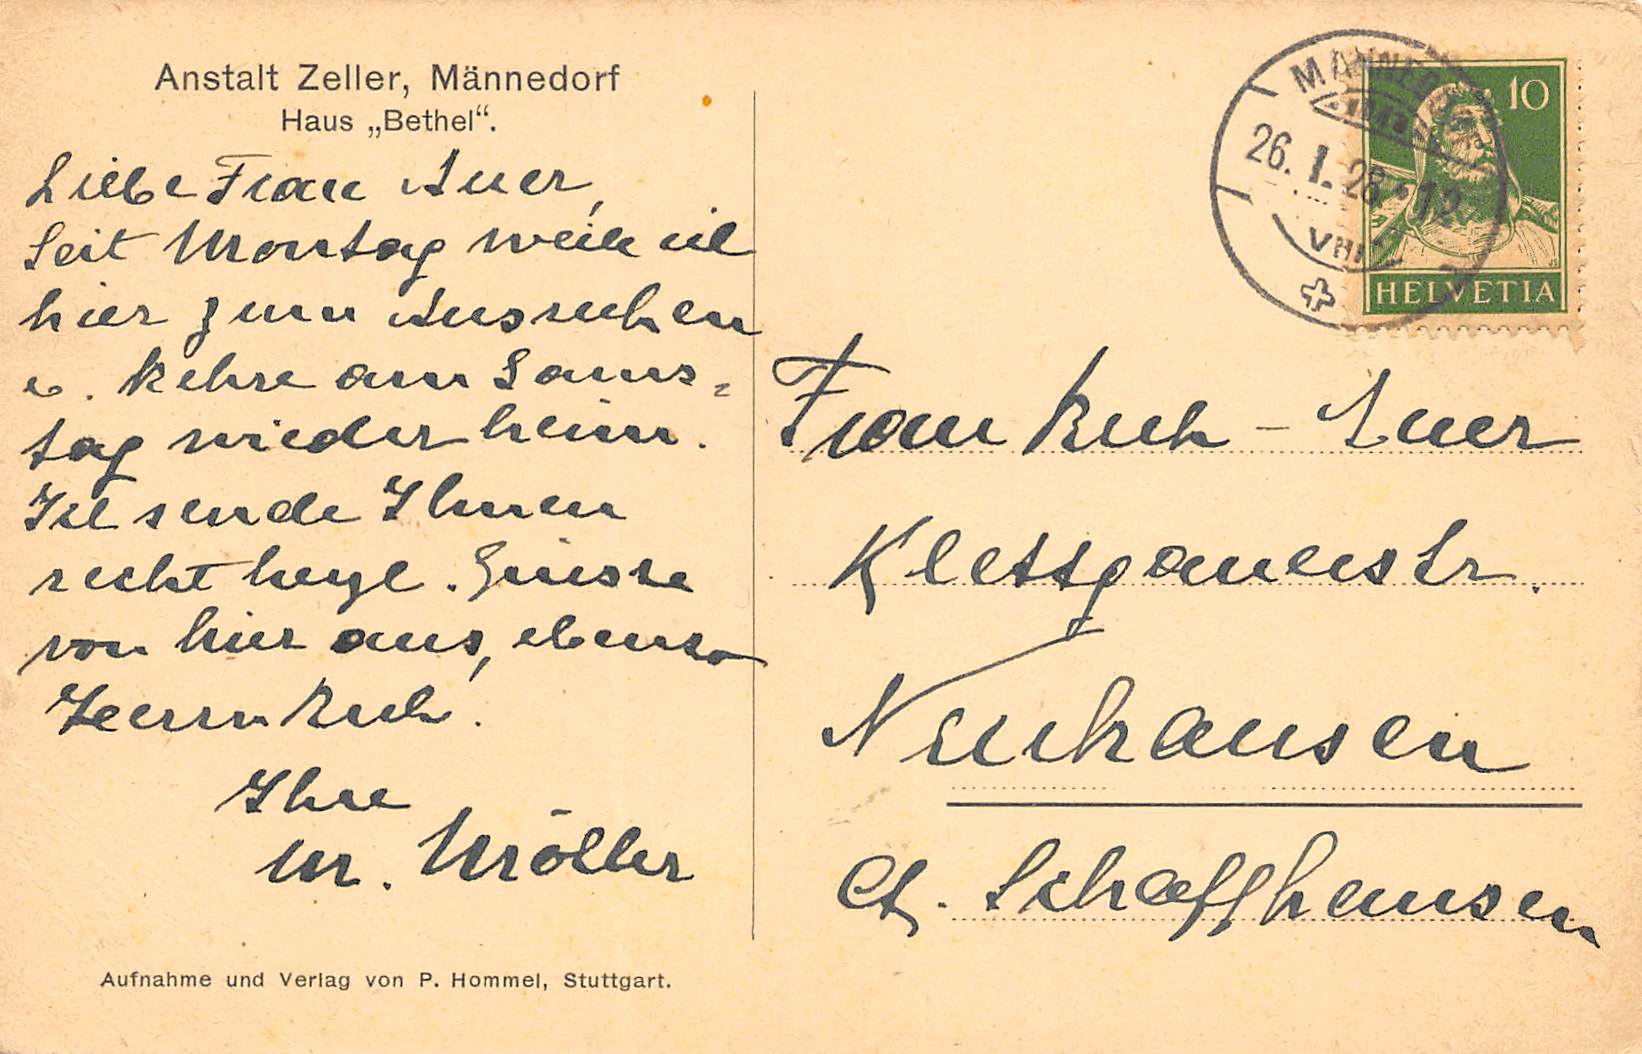 Anstalt Zeller, Männedorf
Haus „Bethel“.
Liebe Frau Auer,
Seit Montag weile ich
hier zum Ausruhen
u. kehre am Sams=
tag wieder heim.
Ich sende Ihnen
recht herzl. Grüsse
von hier aus, ebenso
Herrn Ruh.
Ihre
M. Möller
Aufnahme und Verlag von P. Hommel, Stuttgart.
MÄNNEDORF
26. I. 28 • 12
VIII
10
HELVETIA
Frau Ruh - Auer
Klettgauerstr.
Neuhausen
Ct. Schaffhausen